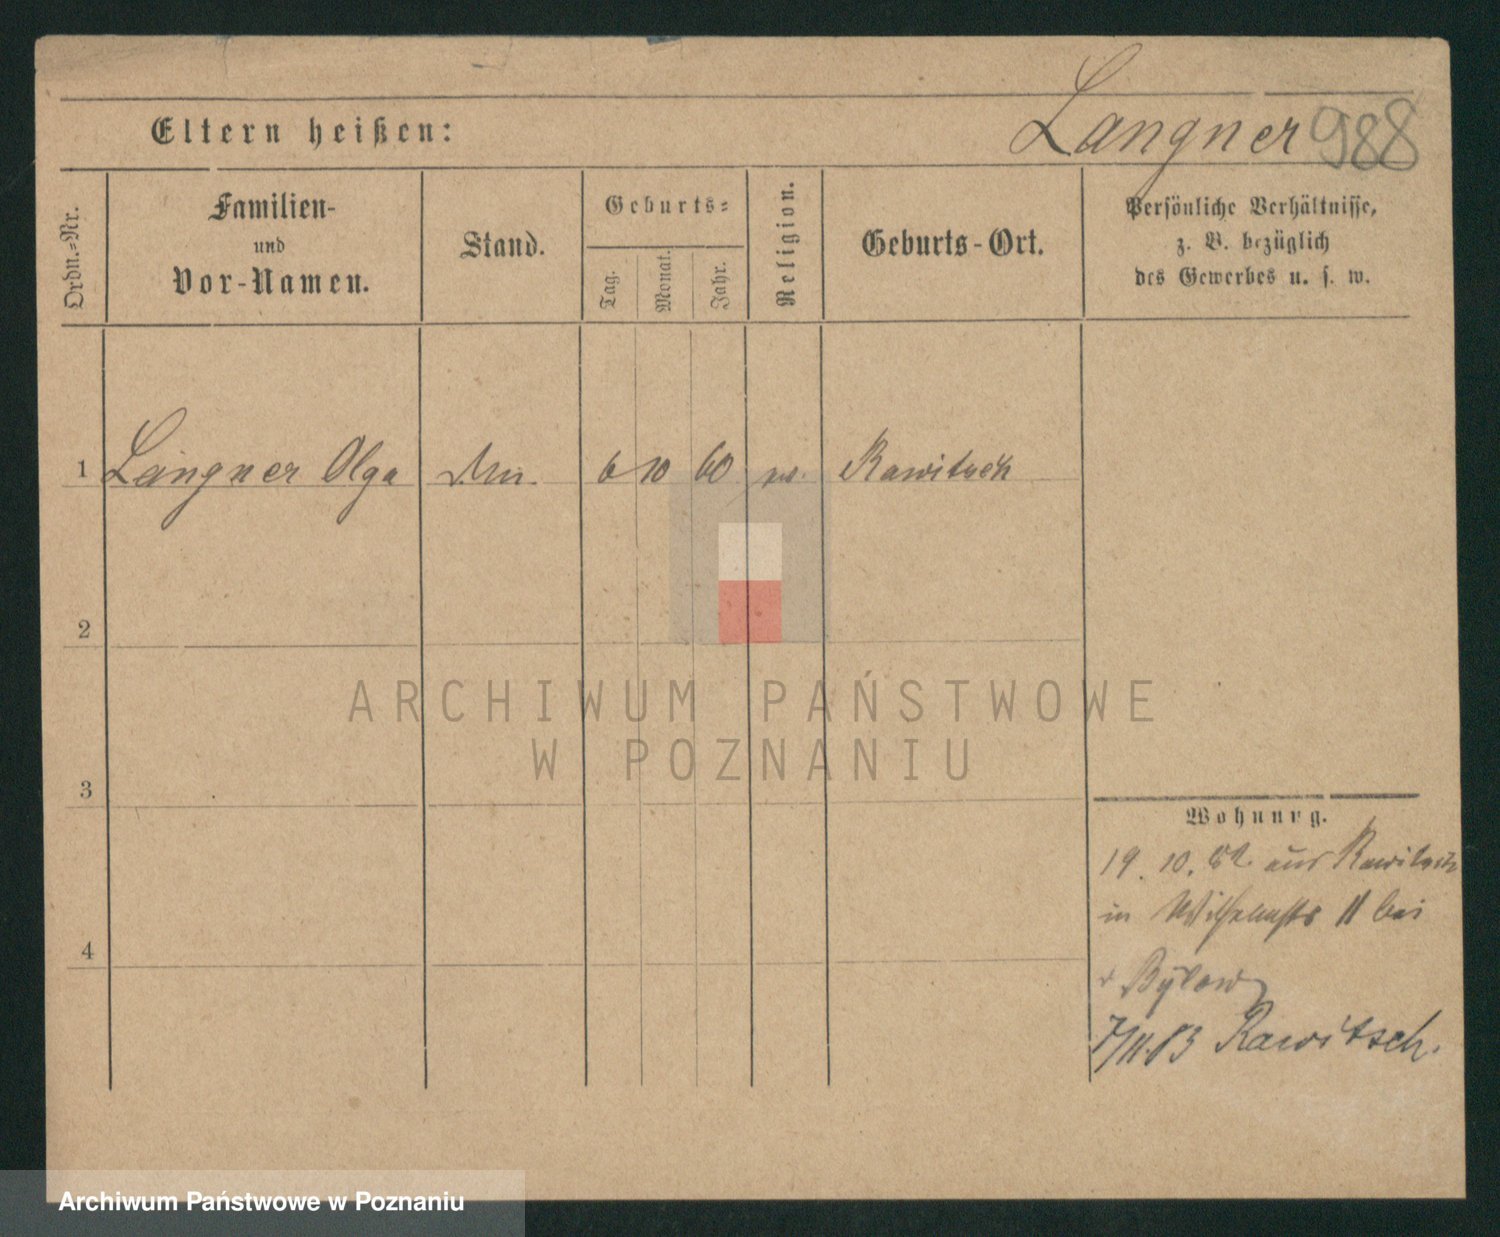 Eltern heißen:
Langner 988
Ordn.=Nr.
Familien-
und
Vor-Namen.
Stand.
Geburts=
Tag.
Monat.
Jahr.
Religion.
Geburts-Ort.
Persönliche Verhältnisse,
z. B. bezüglich
des Gewerbes u. s. w.
1 Langner Olga 6 10 60 Rawitsch
2
ARCHIWUM PAŃSTWOWE
W POZNANIU
3
Wohnung.
19. 10. 82 aus Rawitsch
in Wilhelmstr 11 bei
v Bülow
4
7/11.83 Rawitsch.
Archiwum Państwowe w Poznaniu